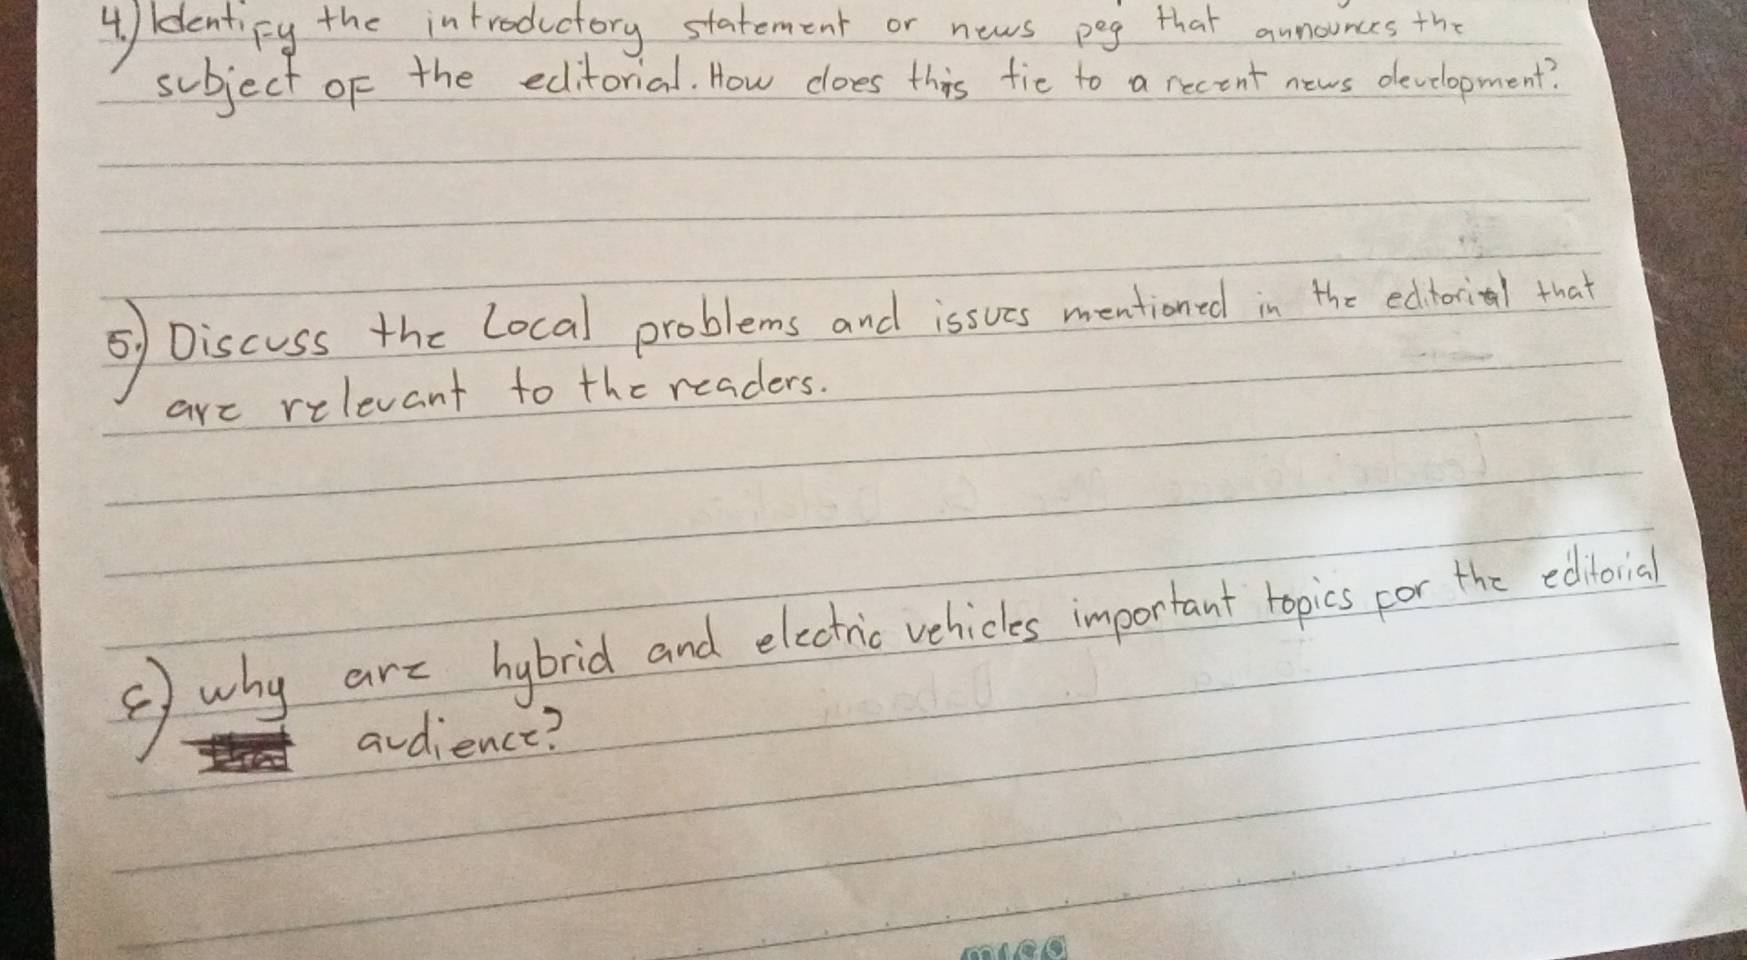 4.) Identify the introductory statement or news peg that announces the
subject of the editorial. How does this tie to a recent news development?
5.) Discuss the local problems and issues mentioned in the editorial that
are relevant to the readers.
6.) why are hybrid and electric vehicles important topics for the editorial
audience?